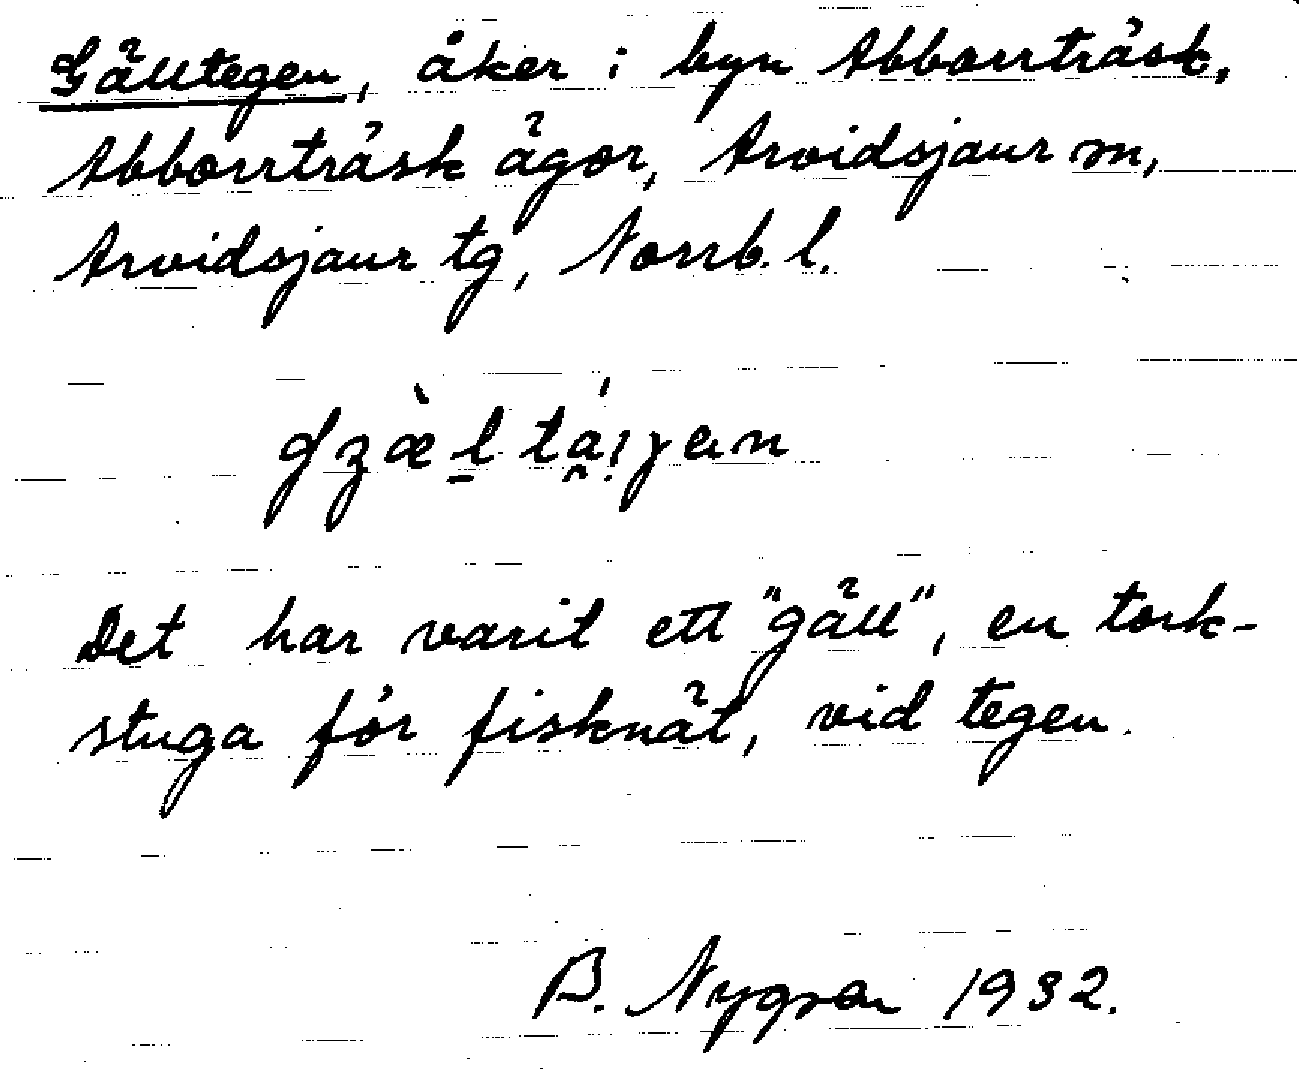 Gälltegen, åker i byn Abborrträsk,
Abborrträsk ägor, Arvidsjaur sn,
Arvidsjaur tg, Norrb. l.
Det har varit ett "gäll", en tork-
stuga för fisknät, vid tegen.
B. Nygren 1932.